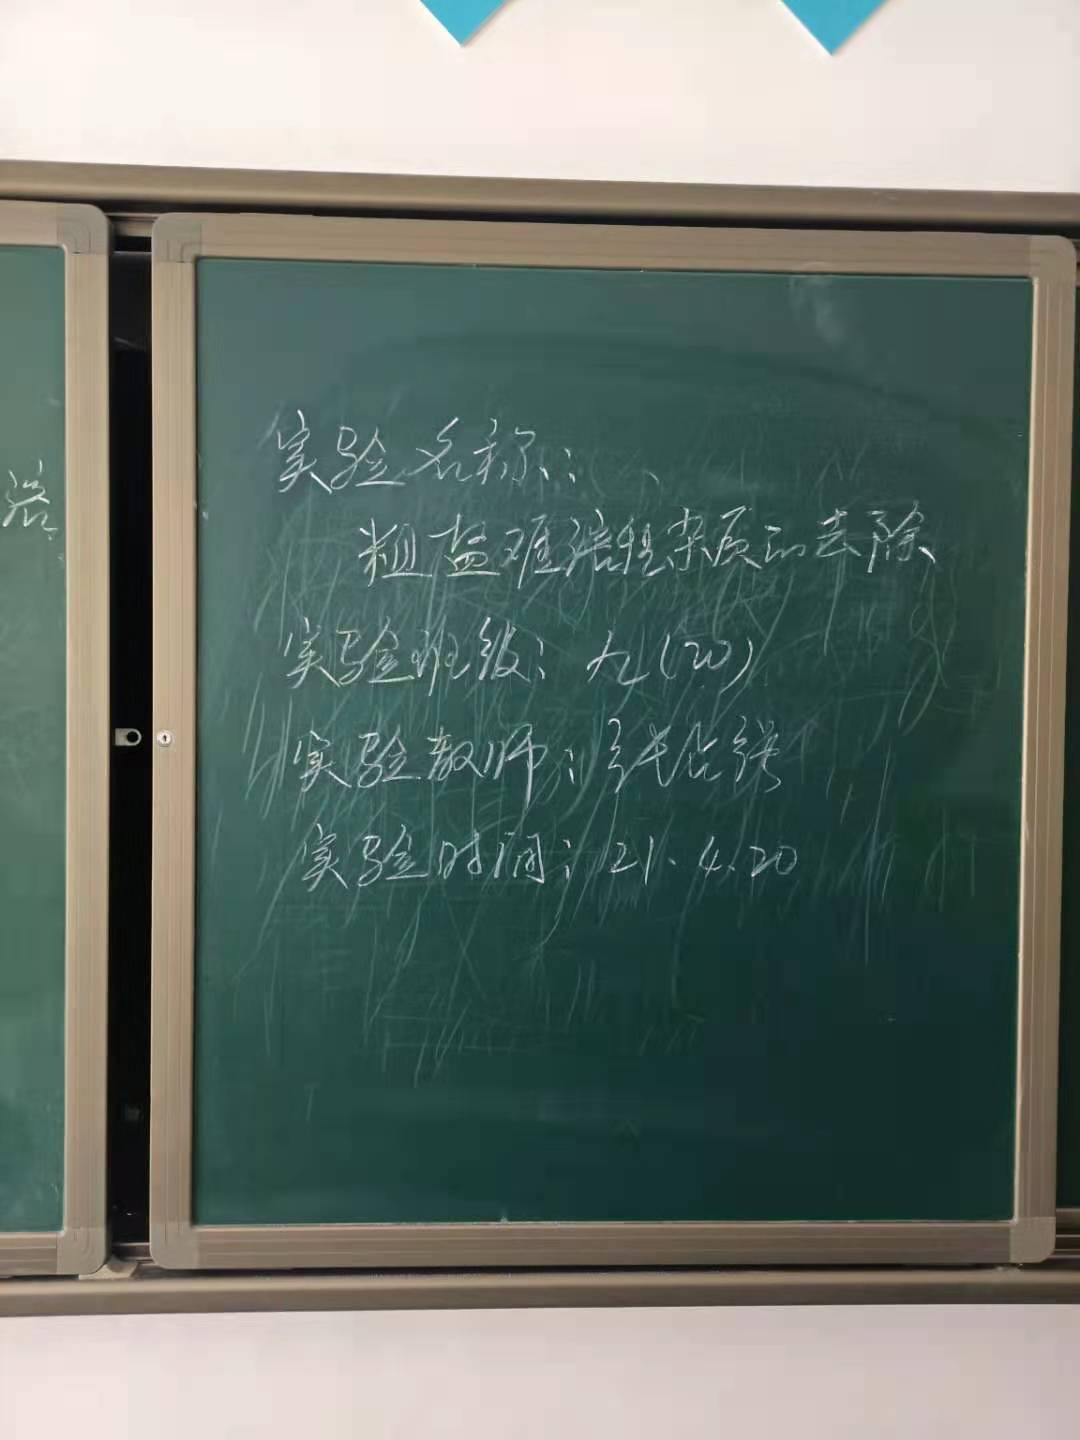 溶
实验名称:
粗盐难溶性杂质的去除
实验班级: 九(20)
实验教师: 张
实验时间: 21.4.20